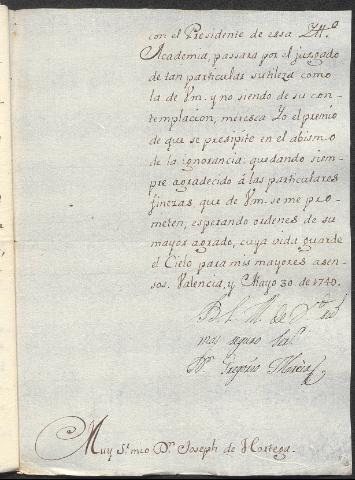 con el Presidente de essa Il.e
Academia, passara por el juzgado
de tan particular sutileza como
la de Vm. y no siendo de su con-
templacion, meresca Yo el premio
de que se presipite en el abismo
de la ignorancia: quedando siem-
pre agradecido â las particulares
finezas, que de Vm. se me pro-
meten, esperando ordenes de su
mayor agrado, cuya vida guarde
el Cielo para mis mayores asen-
sos. Valencia, y Mayo 30. de 1740.
B. L. M. de V
mas seguro
Dn. Gregorio
Muy Sr. mio Dn. Joseph de Hortega.